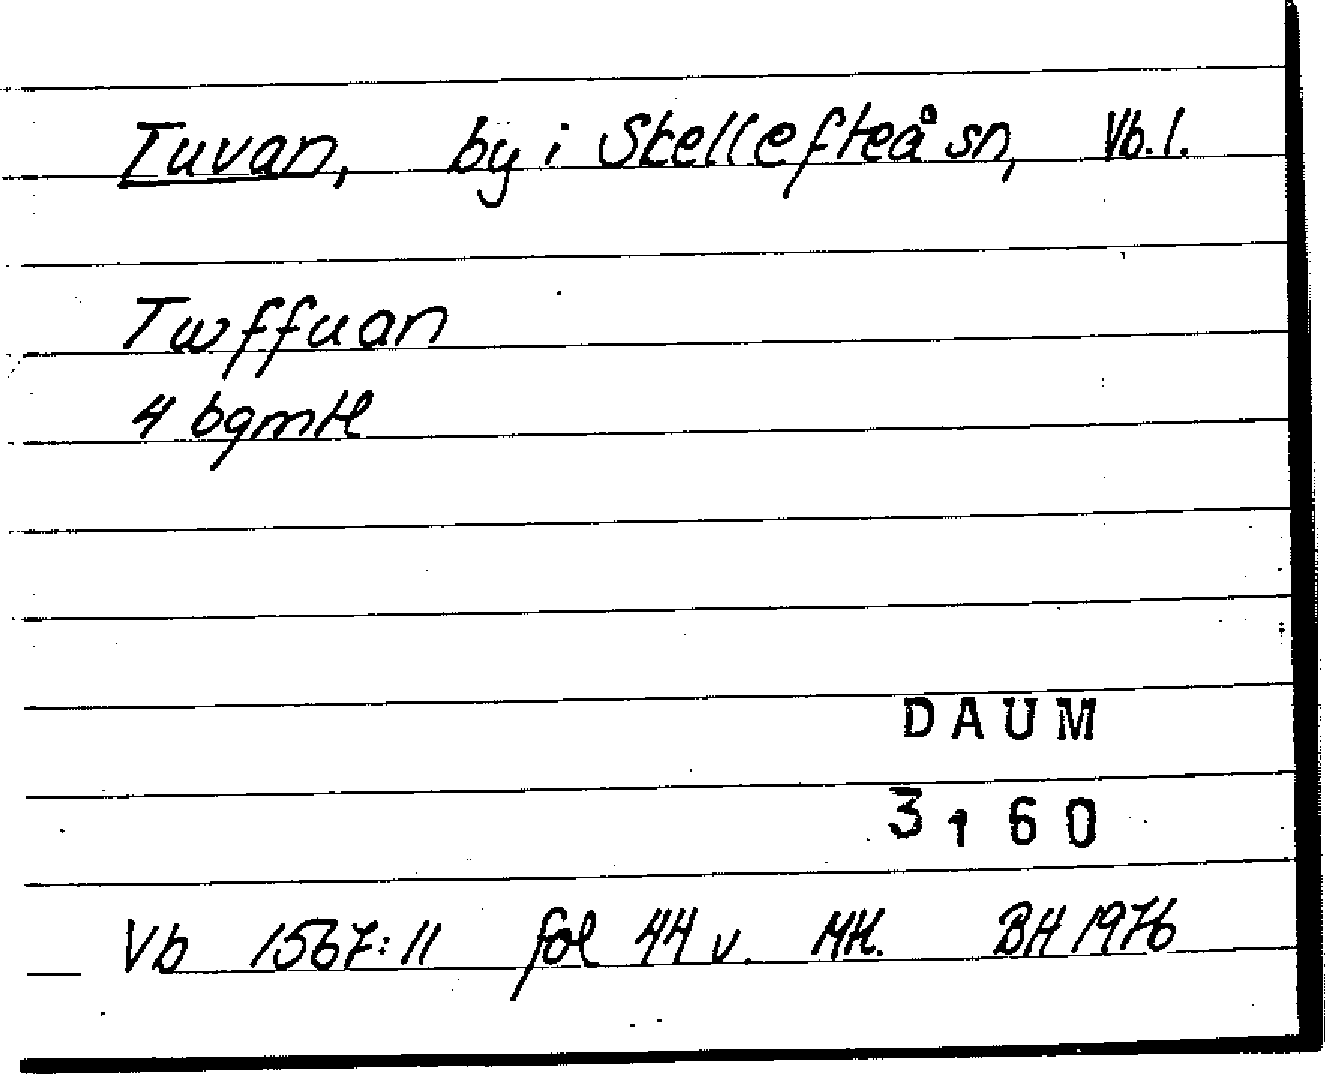 Tuvan, by i Skellefteå sn, Vb. l.
Twffuan
4 bgmtl
DAUM
3160
Vb 1567:11 fol 44 v. MtL. BH 1976